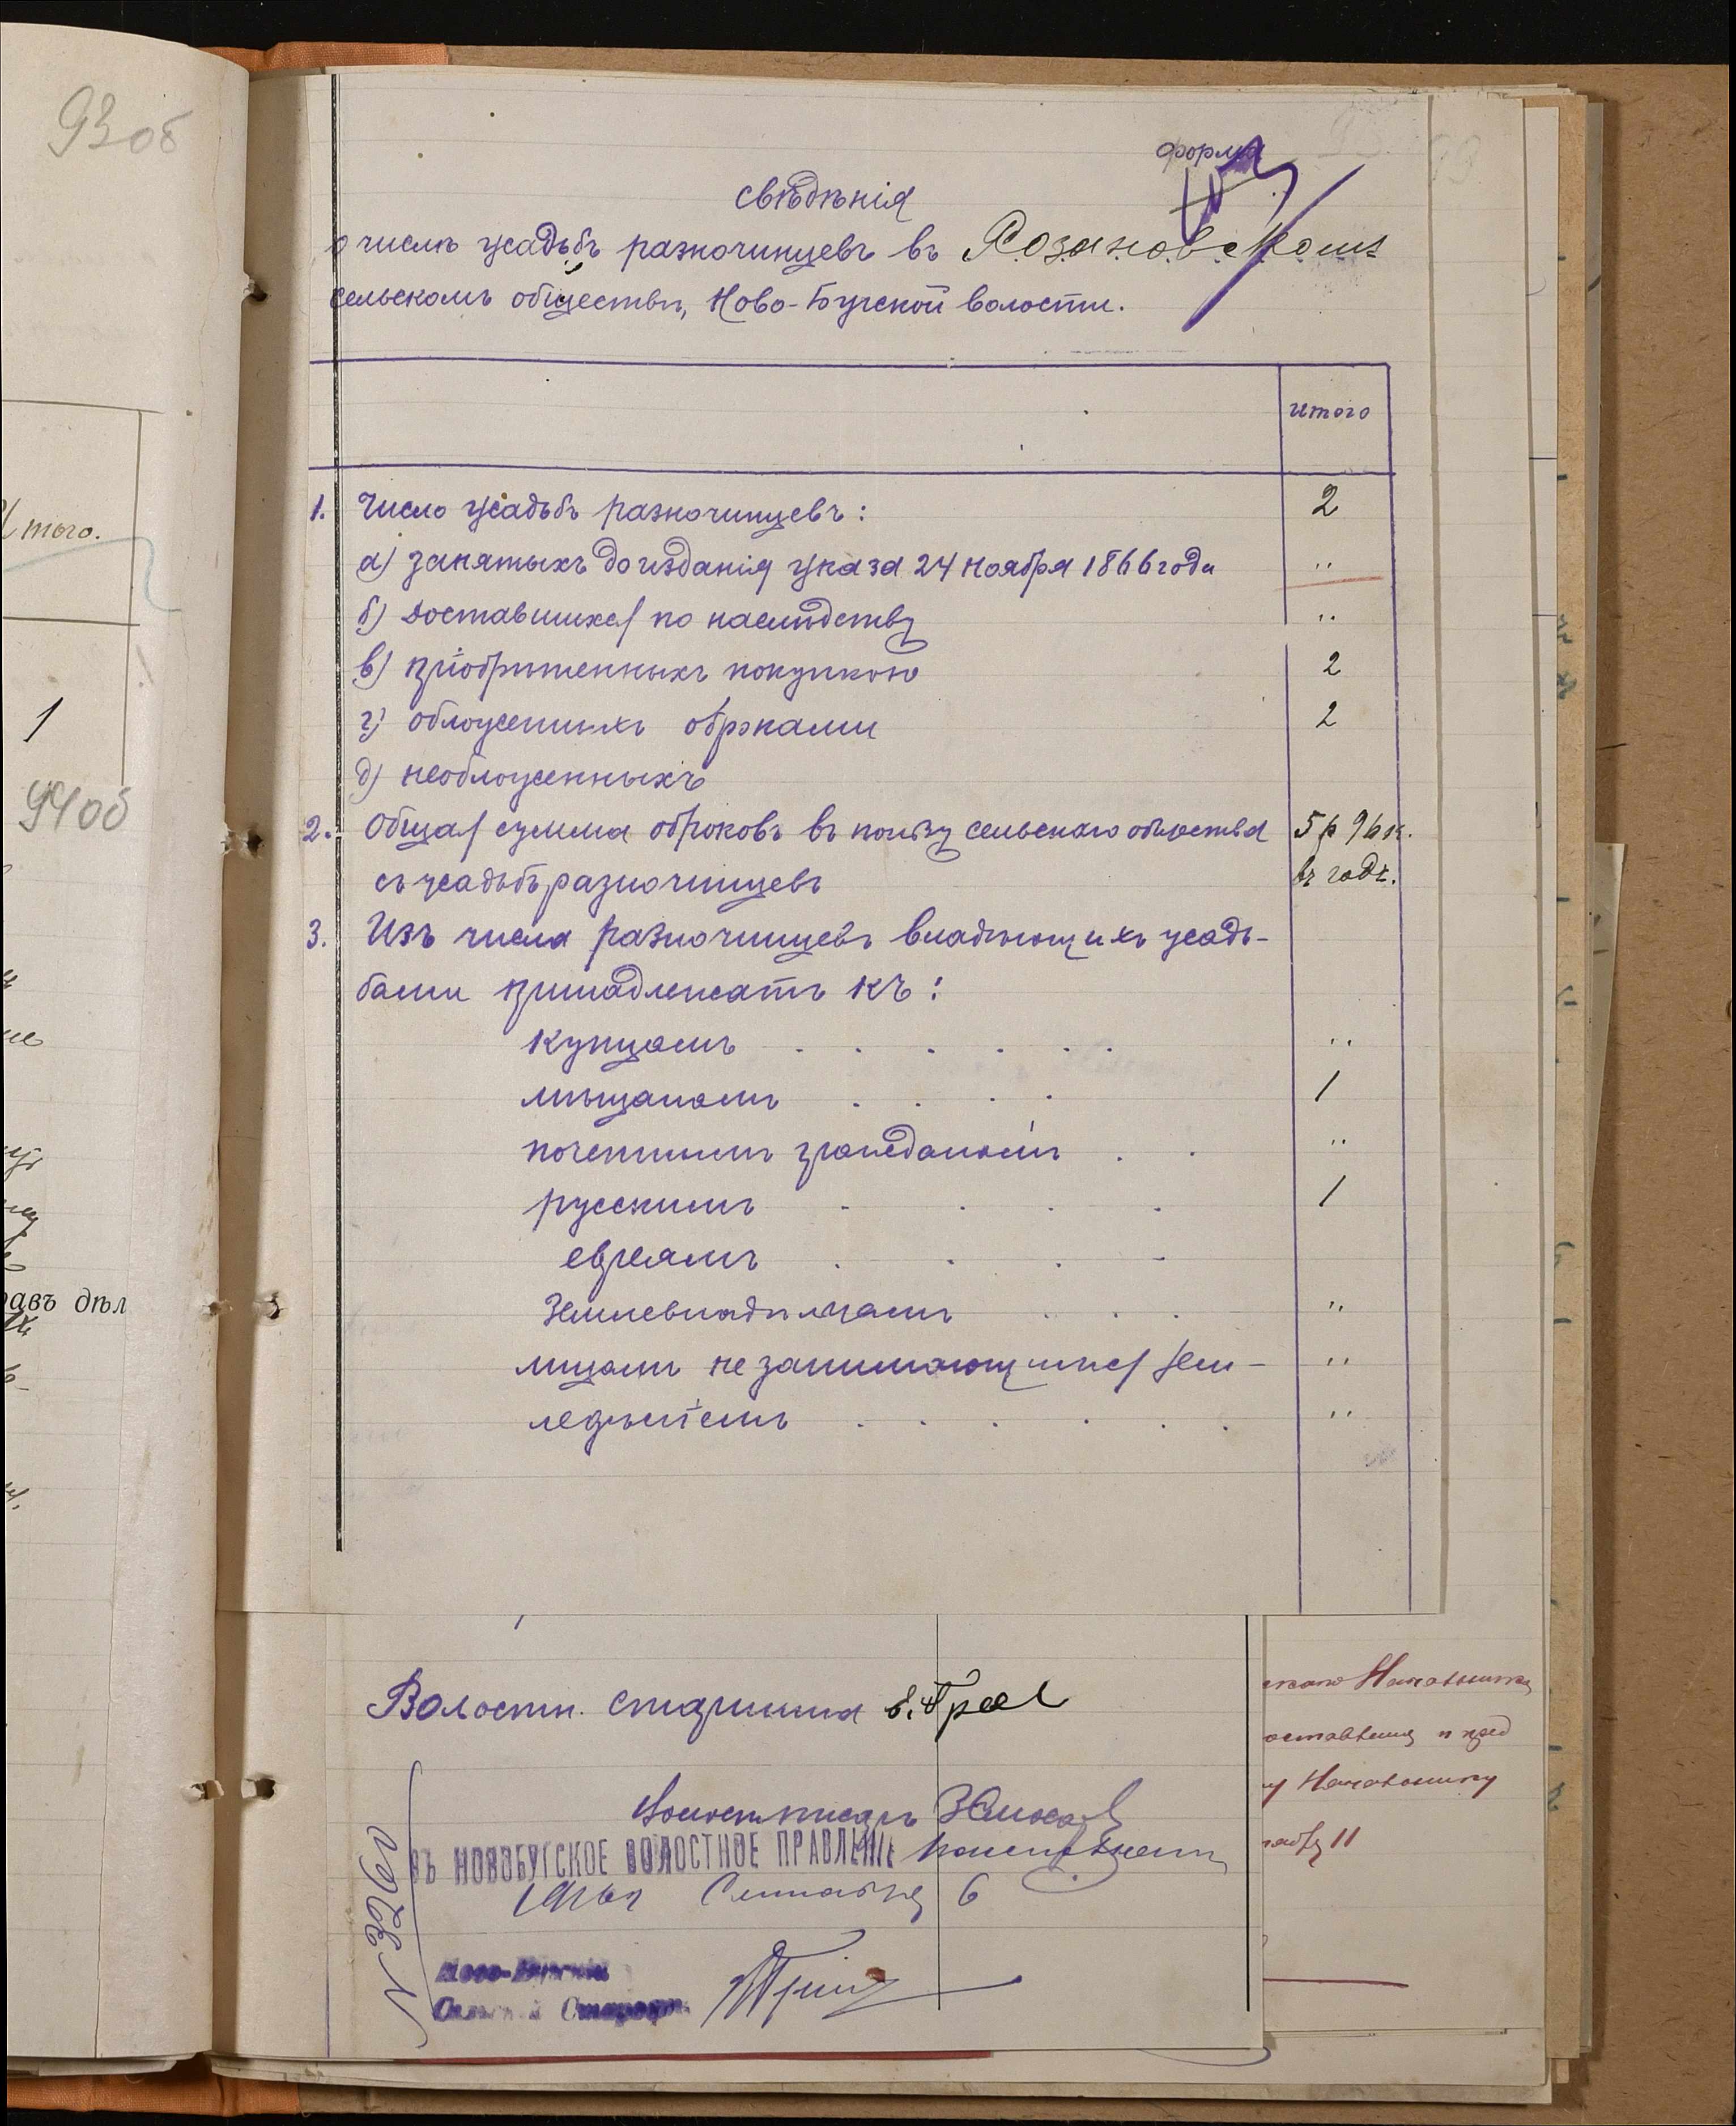 93об
Итого.
1
94об
равъ дѣл
форма
свѣдѣнія
о числѣ усадьбъ разночинцевъ въ Розановскомъ
сельскомъ обществѣ, Ново-Бугской волости.
итого
1. Число усадьбъ разночинцевъ: 2
а) занятыхъ до изданія указа 24 ноября 1866 года "
б) доставшихся по наслѣдству "
в) пріобрѣтенныхъ покупкою 2
г) обложенныхъ оброками 2
д) необложенныхъ
2. Общая сумма оброковъ въ пользу сельскаго общества 5 р 96 к.
съ усадьбъ разночинцевъ въ годъ.
3. Изъ числа разночинцевъ владѣющихъ усадь-
бами принадлежатъ къ:
купцамъ . . . . . . "
мѣщанамъ . . . . 1
почетнымъ гражданамъ . . "
русскимъ . . . . 1
евреямъ . . . .
Землевладѣльцамъ . . . "
лицамъ не занимающимся зем- "
ледѣліемъ . . . . . . "
Волостн. старшина
Волостн писарь
ВЪ НОВОБУГСКОЕ ВОЛОСТНОЕ ПРАВЛЕНІЕ
Сентября 6
Ново-Бугскій
Сельскій Староста
N 3926
Начальника
Начальнику
11